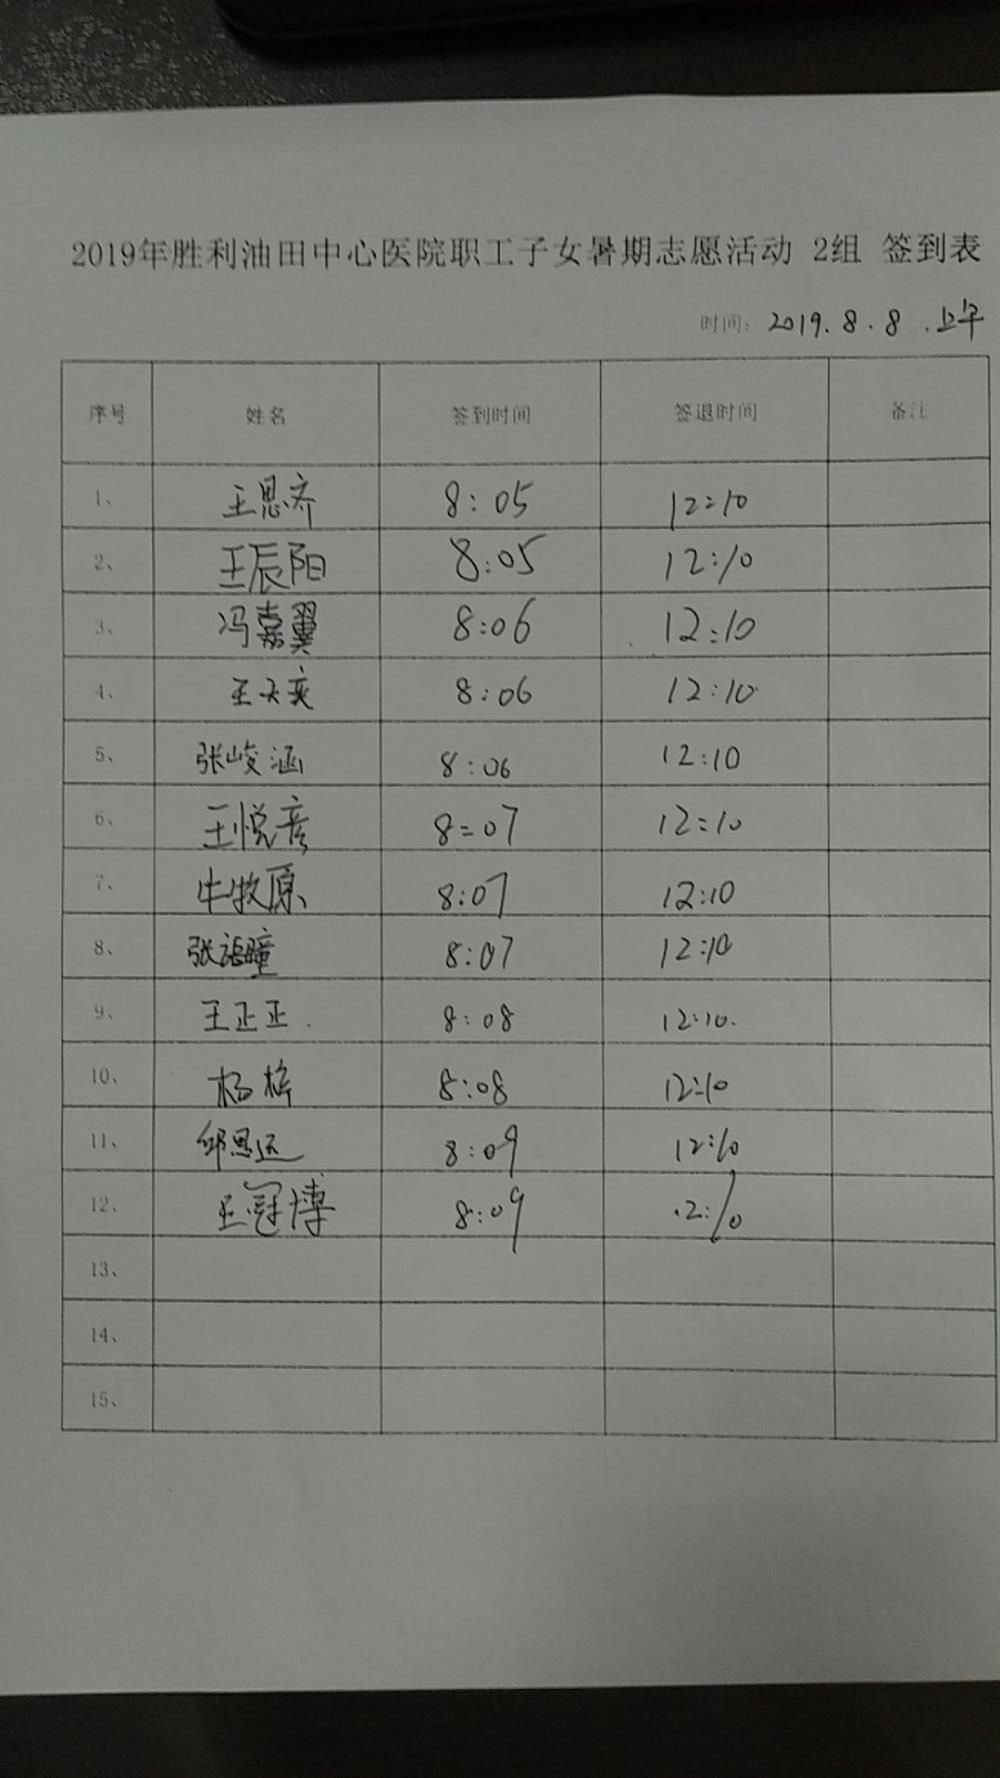 2019年胜利油田中心医院职工子女暑期志愿活动 2组 签到表
时间: 2019.8.8.上午
序号 姓名 签到时间 签退时间 备注
1、 王思齐 8:05 12:10
2、 王辰阳 8:05 12:10
3、 冯嘉翼 8:06 12:10
4、 王天奕 8:06 12:10
5、 张峻涵 8:06 12:10
6、 王悦彦 8:07 12:10
7、 牛牧原 8:07 12:10
8、 张语瞳 8:07 12:10
9、 王正正 8:08 12:10
10、 杨梓 8:08 12:10
11、 邱思远 8:09 12:10
12、 王冠博 8:09 12:10
13、
14、
15、